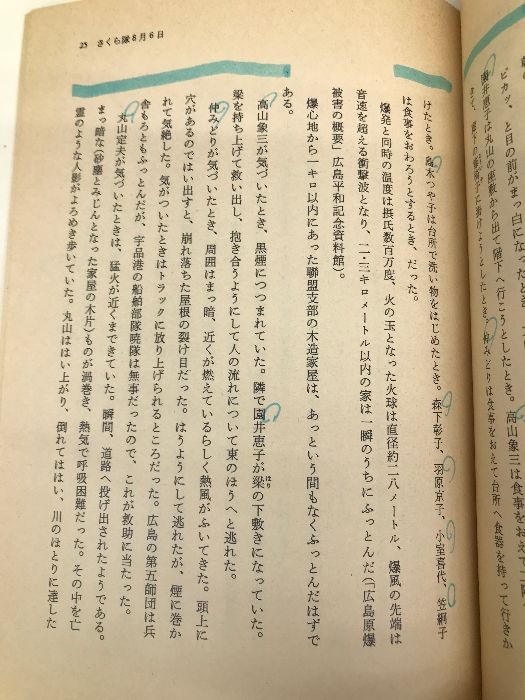 ピカッ、と目の前がまっ白になったと
園井恵子は丸山の座敷から出て階下へ行こうとしたとき。高山象三は食事を
みどりは食事をおえて台所へ食器を持って行きか
けたとき。島木つや子は台所で洗い物をはじめたとき。森下彰子、羽原京子、小室喜代、笠絅子
は食事をおわろうとするとき、だった。
爆発と同時の温度は摂氏数百万度、火の玉となった火球は直径約二八メートル、爆風の先端は
音速を超える衝撃波となり、二・三キロメートル以内の家は一瞬のうちにふっとんだ(「広島原爆
被害の概要」広島平和記念資料館)。
爆心地から一キロ以内にあった聯盟支部の木造家屋は、あっという間もなくふっとんだはずで
ある。
高山象三が気づいたとき、黒煙につつまれていた。隣で園井恵子が梁の下敷きになっていた。
はり
梁を持ち上げて救い出し、抱き合うようにして人の流れについて東のほうへと逃れた。
仲みどりが気づいたとき、周囲はまっ暗、近くが燃えているらしく熱風がふいてきた。頭上に
穴があるのではい出すと、崩れ落ちた屋根の裂け目だった。はうようにして逃れたが、煙に巻か
れて気絶した。気がついたときはトラックに放り上げられるところだった。広島の第五師団は兵
舎もろともふっとんだが、宇品港の船舶部隊暁隊は無事だったので、これが救助に当たった。
丸山定夫が気づいたときは、猛火が近くまできていた。瞬間、道路へ投げ出されたようである。
まっ暗な(砂塵とみじんとなった家屋の木片)ものが渦巻き、熱気で呼吸困難だった。その中を亡
霊のような人影がよろめき歩いていた。丸山ははい上がり、倒れてははい、川のほとりに達した
25 さくら隊8月6日